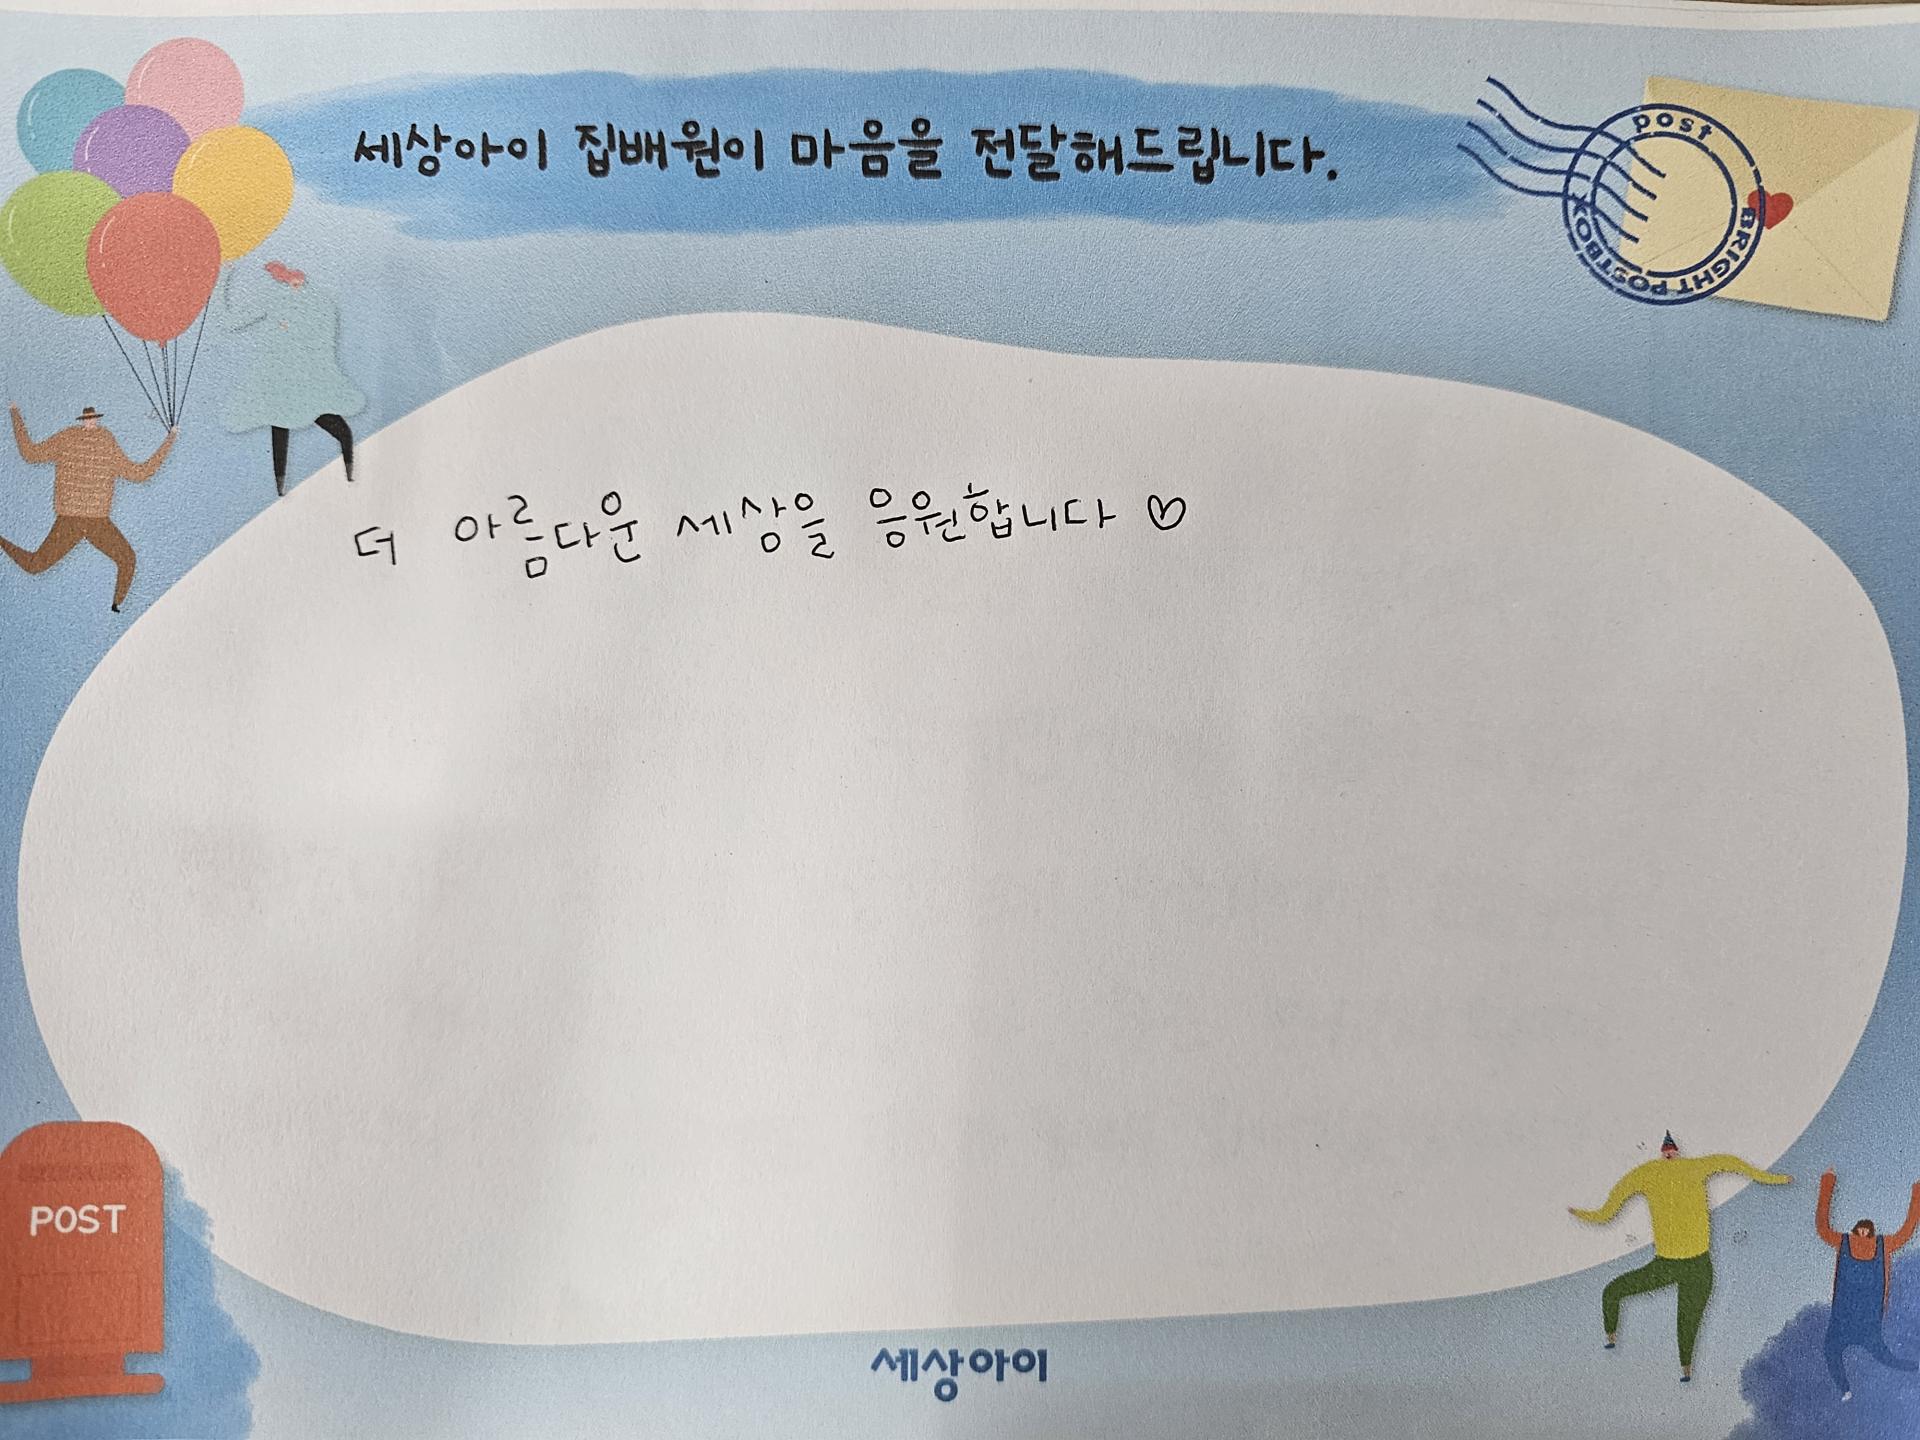 세상아이 집배원이 마음을 전달해드립니다.
post
BRIGHT POSTBOX
더 아름다운 세상을 응원합니다 ♡
POST
세상아이